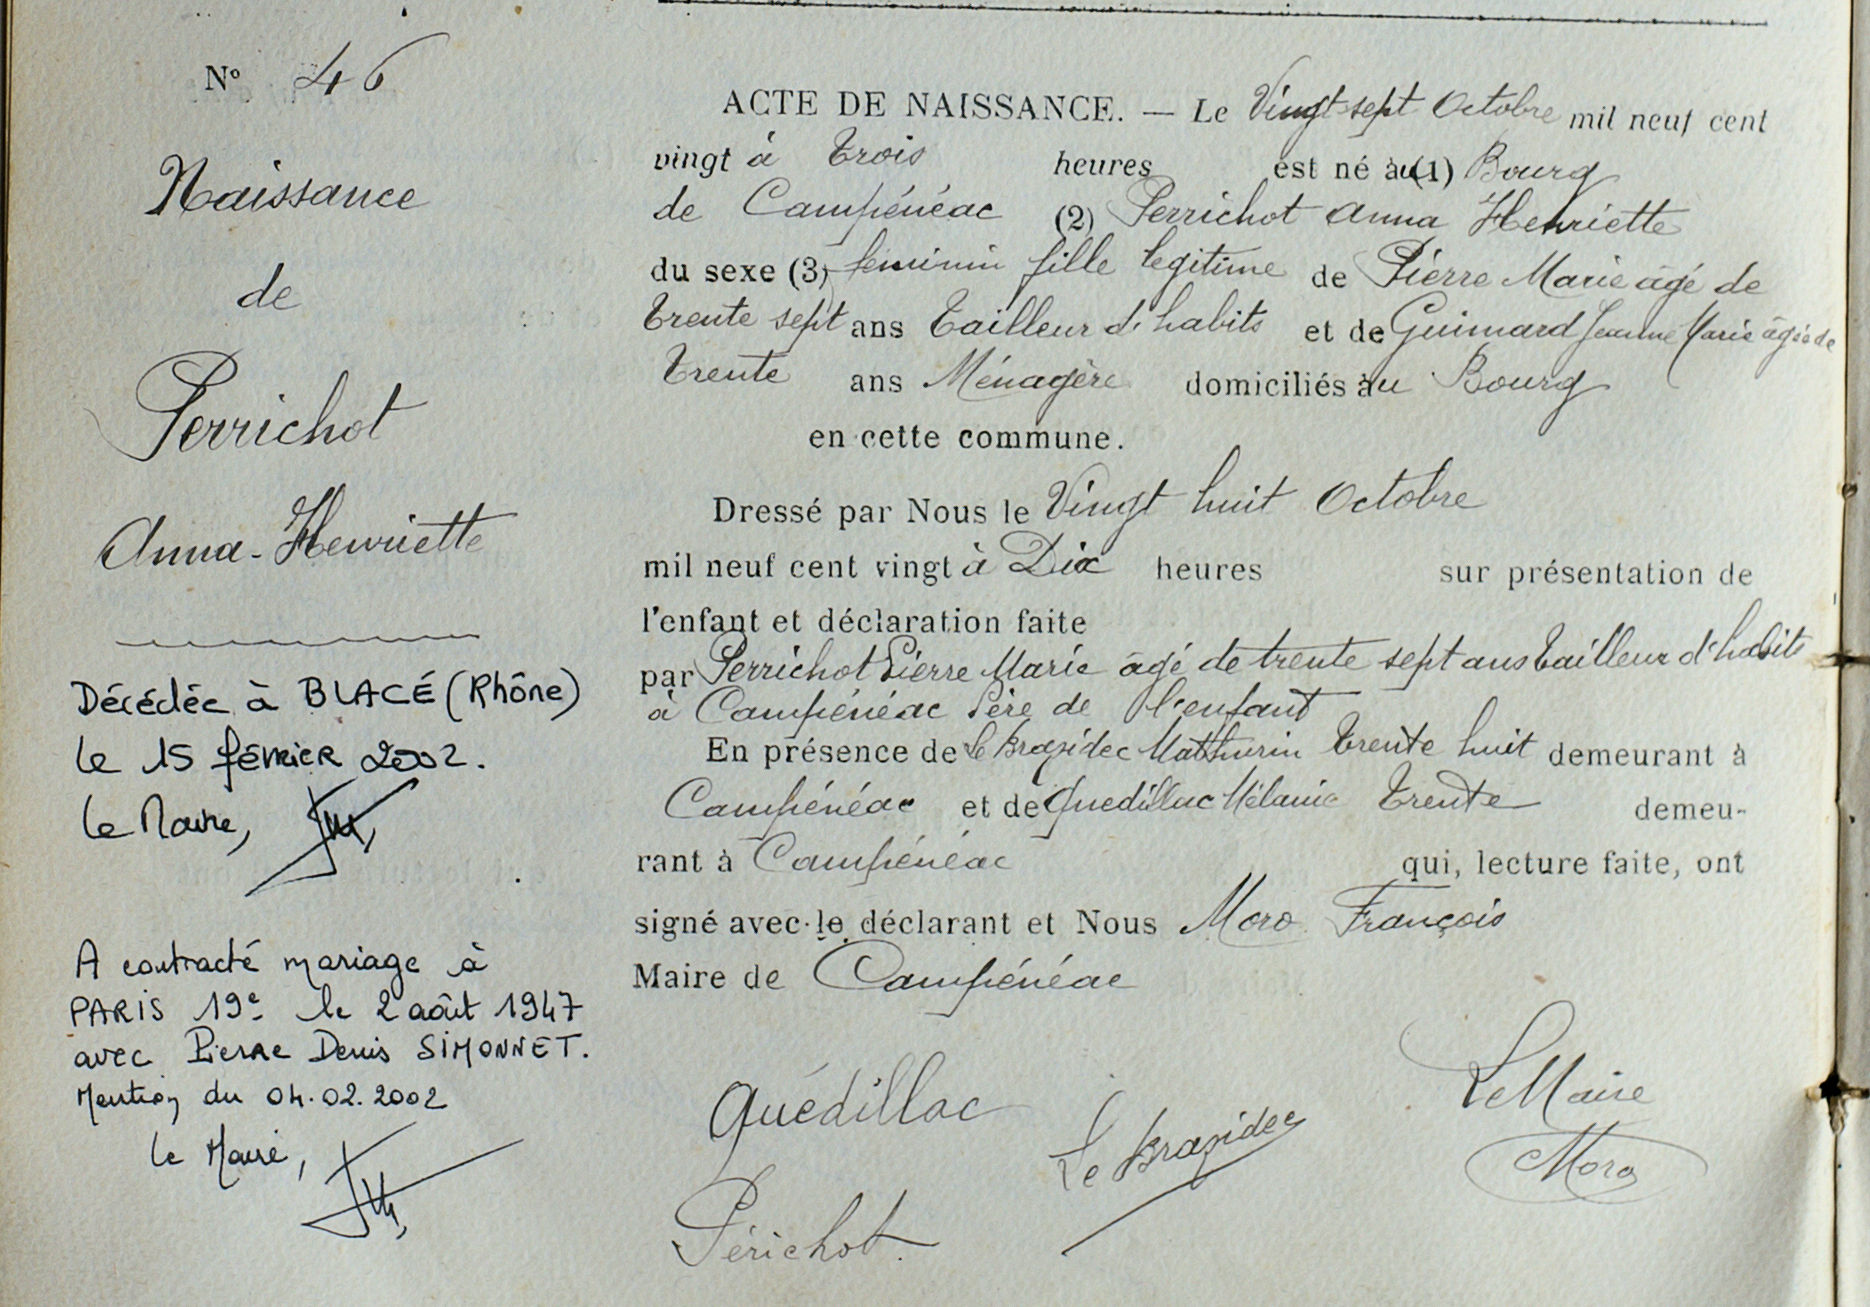 N° 46
Naissance
de
Perrichot
Anna-Henriette
Décédée à BLACÉ (Rhône)
le 15 février 2002.
Le Maire,
A contracté mariage à
PARIS 19e le 2 août 1947
avec Pierre Denis SIMONNET.
Mention du 04.02.2002
le Maire,
ACTE DE NAISSANCE. — Le Vingt-sept Octobre mil neuf cent
vingt à Trois heures est né au (1) Bourg
de Campénéac (2) Perrichot Anna Henriette
du sexe (3) féminin fille légitime de Pierre Marie âgé de
trente sept ans Tailleur d'habits et de Guimard Jeanne Marie âgée de
trente ans Ménagère domiciliés au Bourg
en cette commune.
Dressé par Nous le Vingt huit Octobre
mil neuf cent vingt à Dix heures sur présentation de
l'enfant et déclaration faite
par Perrichot Pierre Marie âgé de trente sept ans tailleur d'habits
à Campénéac Père de l'enfant
En présence de Le Brazidec Mathurin trente huit demeurant à
Campénéac et de Quedillac Mélanie trente demeu-
rant à Campénéac qui, lecture faite, ont
signé avec le déclarant et Nous Moro François
Maire de Campénéac
Quédillac
Le Brazidec
Le Maire
Moro
Périchot